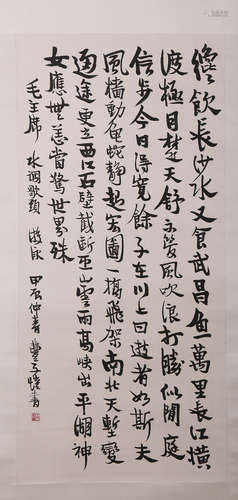 纔飲長沙水又食武昌魚萬里長江橫
渡極目楚天舒不管風吹浪打勝似閒庭
信步今日得寬餘子在川上曰逝者如斯夫
風檣動龜蛇靜起宏圖一橋飛架南北天塹變
通途更立西江石壁截斷巫山雲雨高峽出平湖神
女應無恙當驚世界殊
毛主席 水調歌頭 游泳 甲辰仲春 豐子愷書